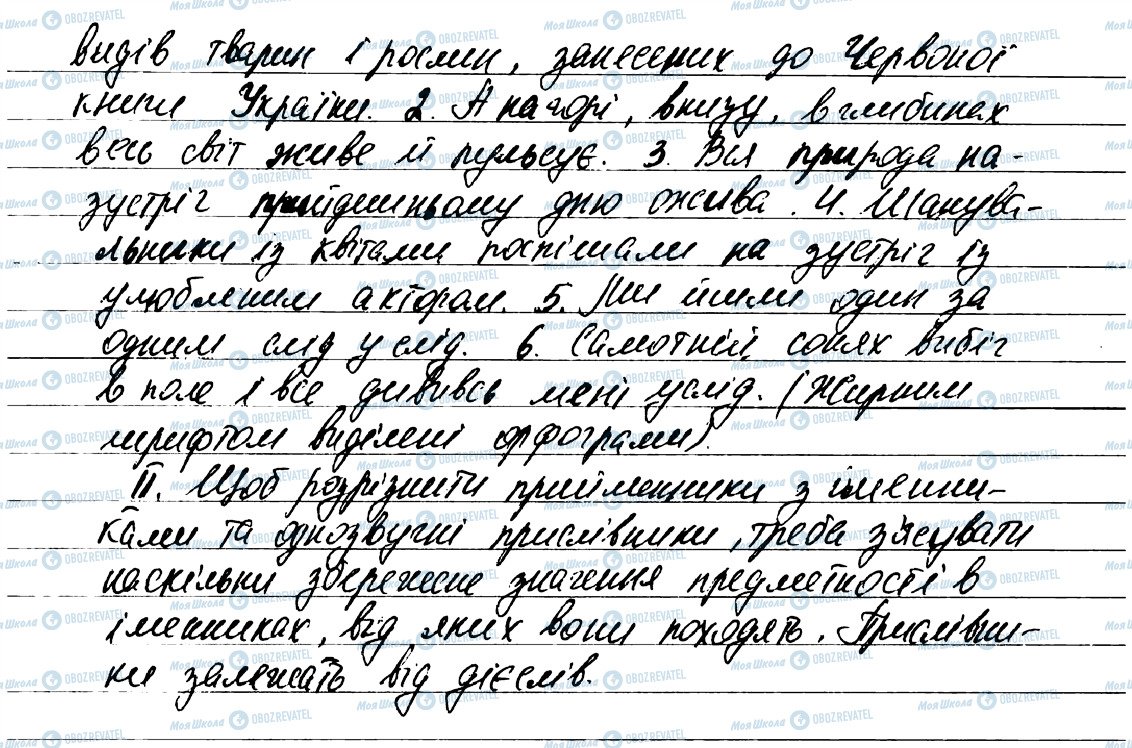 видів тварин і рослин, занесених до Червоної
книги України. 2. А нагорі, внизу, в глибинах
весь світ живе й пульсує. 3. Вся природа на-
зустріг прийдешньому дню ожива. 4. Шанува-
льники із квітами поспішали на зустріг із
улюбленим актором. 5. Ми йшли один за
одним слід у слід. 6. Самотній сонях вибіг
в поле і все дививсь мені услід. (Жирним
шрифтом виділені орфограми).
II. Щоб розрізнити прийменники з іменни-
ками та однозвучні прислівники, треба з'ясувати
наскільки збережене значення предметності в
іменниках, від яких вони походять. Прислівни-
ки залежать від дієслів.